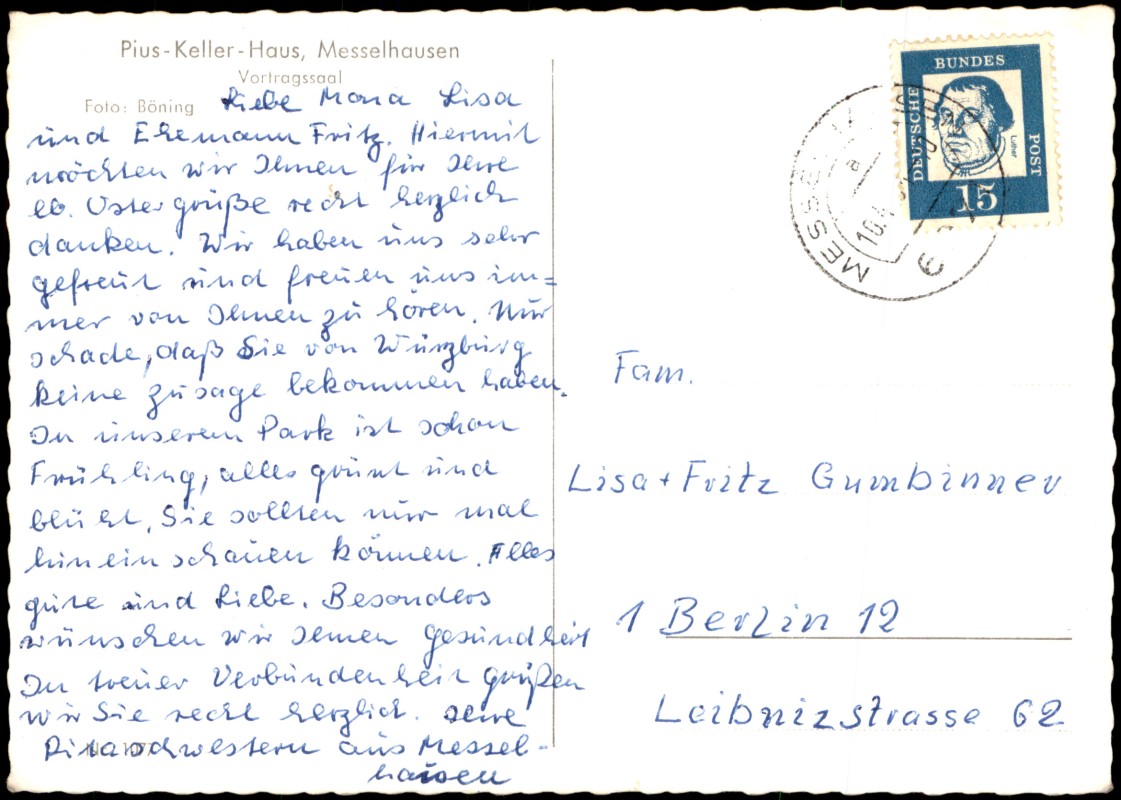 Pius-Keller-Haus, Messelhausen
Vortragssaal
Foto: Böning
Liebe Mona Lisa
und Ehemann Fritz. Hiermit
möchten wir Ihnen für Ihre
lb. Ostergrüße recht herzlich
danken. Wir haben uns sehr
gefreut und freuen uns im=
mer von Ihnen zu hören. Nur
schade, daß Sie von Würzburg
keine Zusage bekommen haben.
In unserem Park ist schon
Frühling, alles grünt und
blüht, Sie sollten nur mal
hinein schauen können. Alles
gute und Liebe. Besonders
wünschen wir Ihnen Gesundheit
In treuer Verbundenheit grüßen
wir Sie recht herzlich. Ihre
Ritaschwestern aus Messel-
hausen
DEUTSCHE BUNDES POST
Luther
15
MESSEL
a
10.4
Fam.
Lisa + Fritz Gumbinner
1 Berlin 12
Leibnizstrasse 62